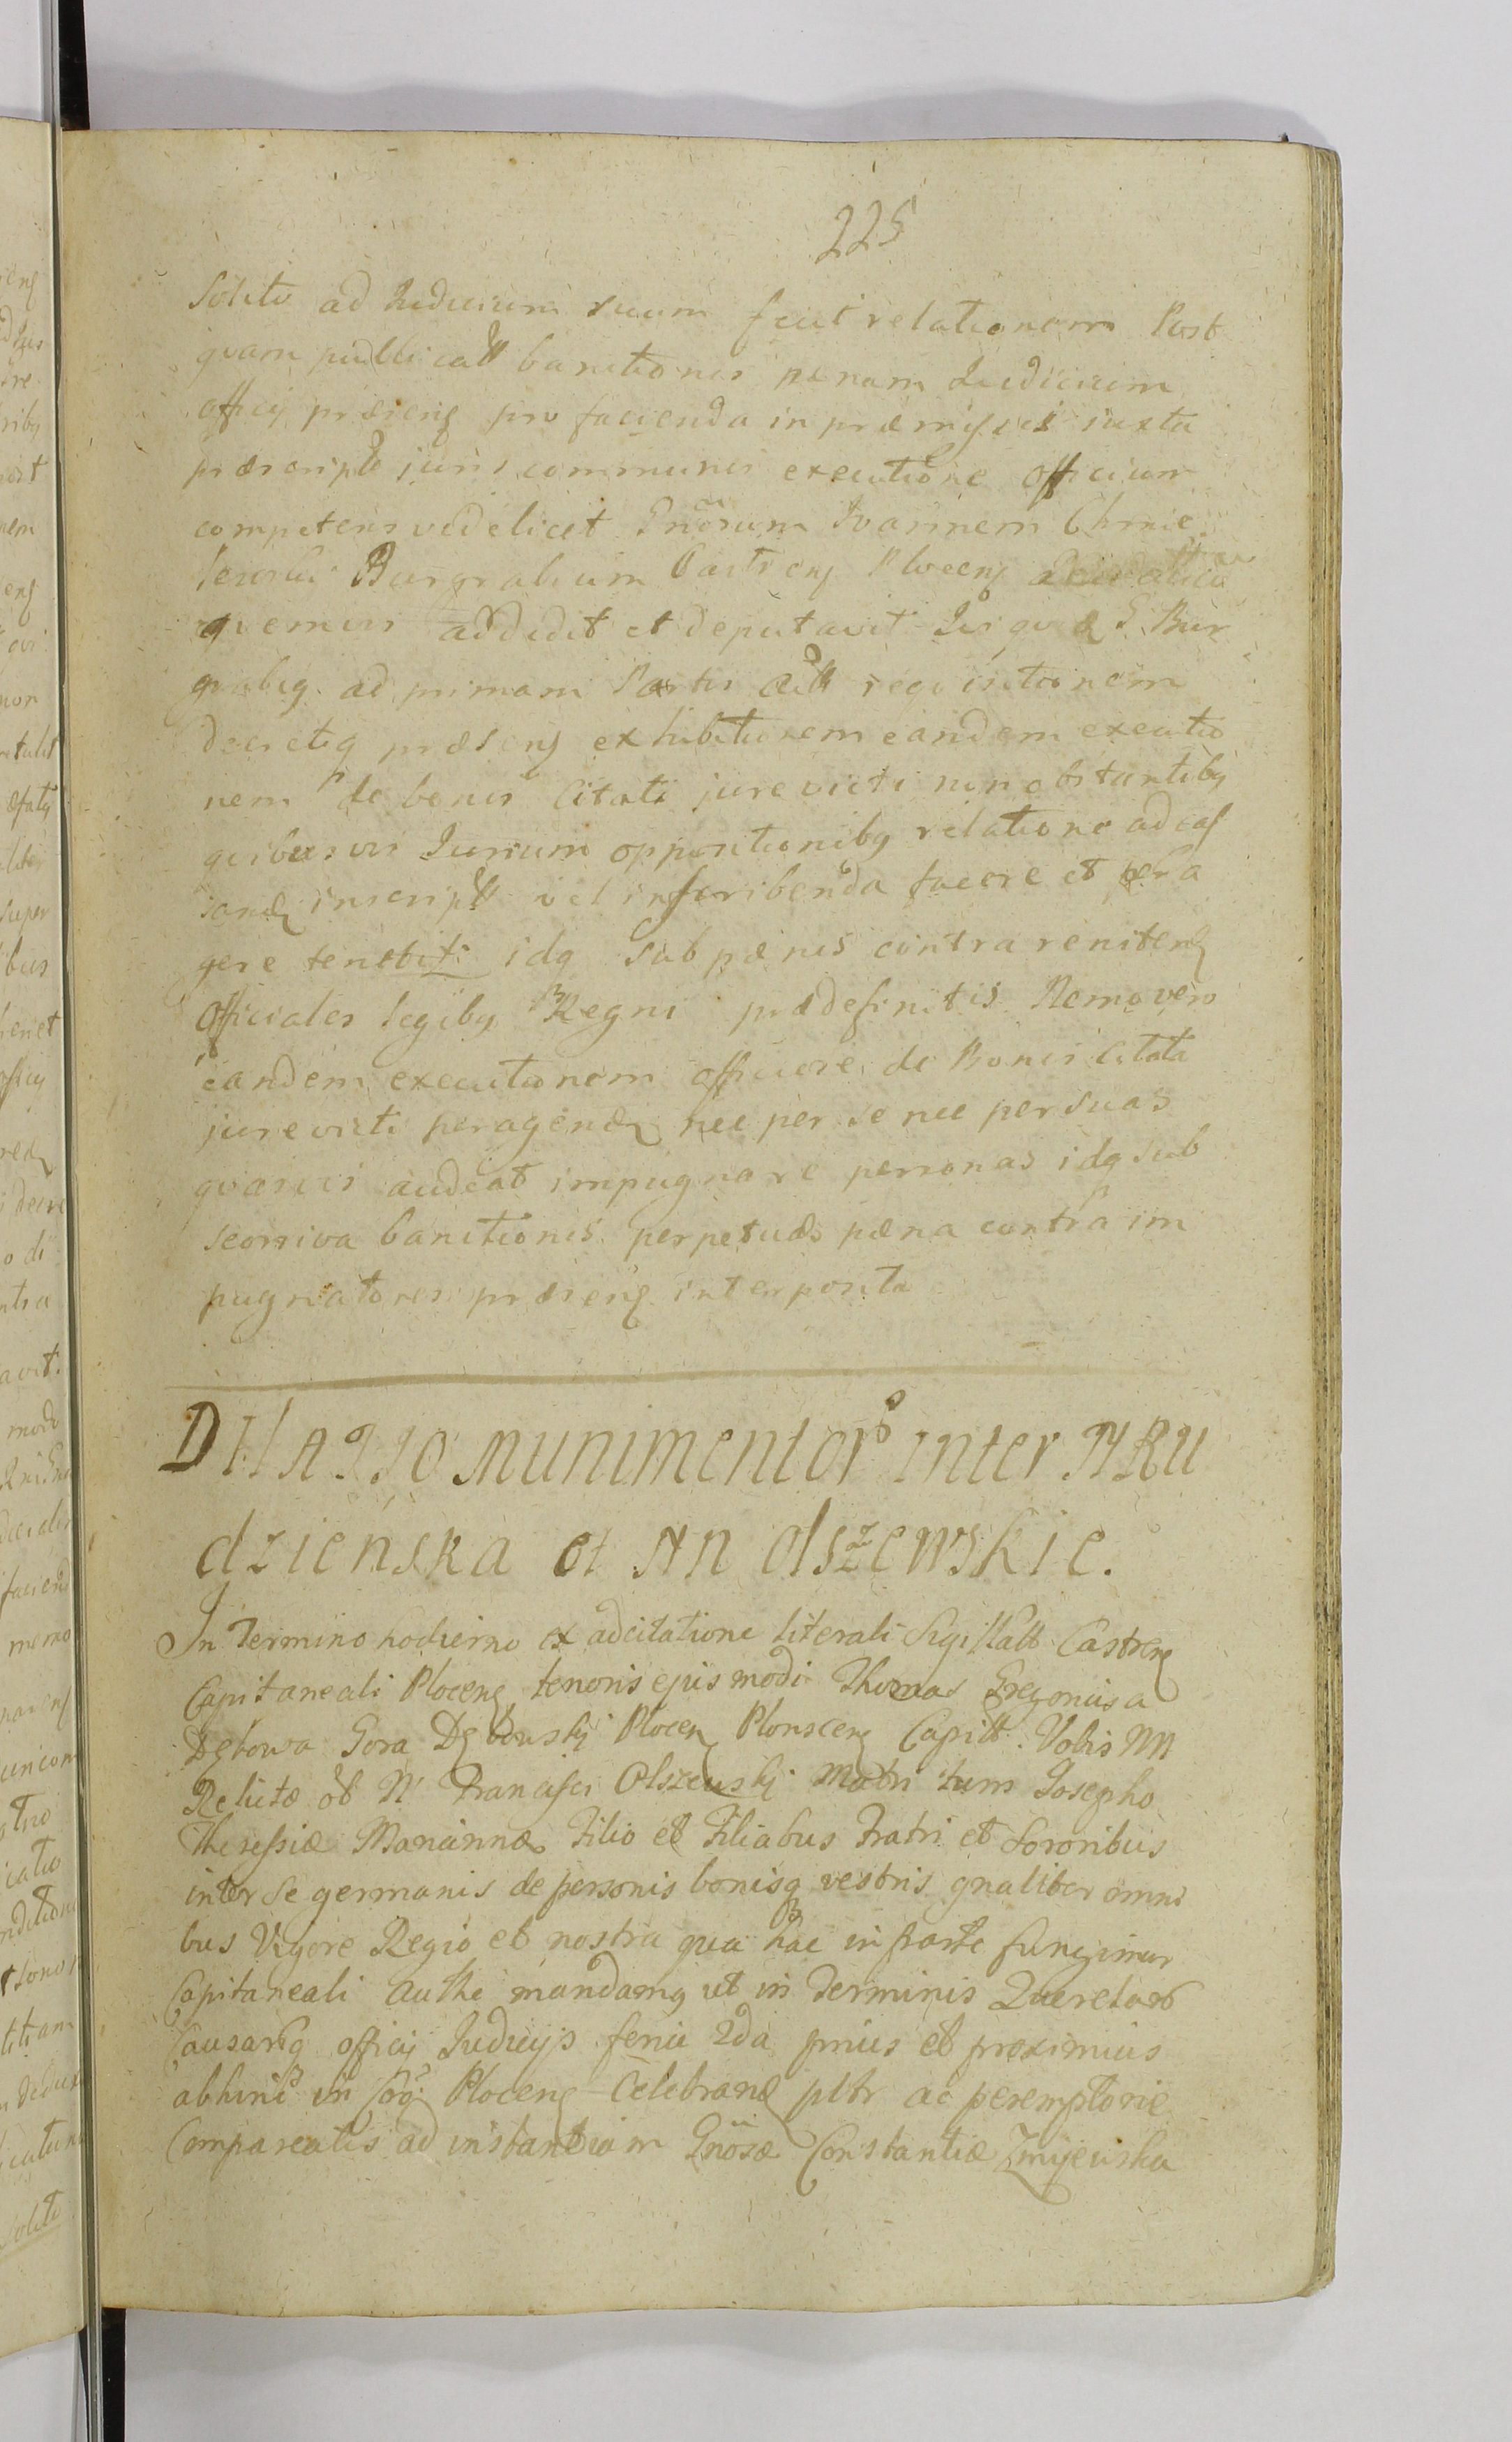 225
Solito ad Judicium suum fecit relationem Post
quam publicatt banitionis pænam Judicium
officij præseng pro facienda in præmissis iuxta
præscripte juris communis executione Officium
competens videlicet Gnõsum Ioannem Chmie
lewski Burgrabium Castreng Ploceng
quemvis addidit et deputavit Qui quid G Bur
grabig ad primam Partis Citt requisitionem
decretiq præseng exhibitionem eandem executio
nem de bonis Citati jurevicti non obstantibg
quibusvis Jurium oppositionibg relatione ad eaf
inscriptt vel inscribenda facere et pera
gere tenebit: idq sub pænis contra renitend
Officiales legibg Regni prædefinitis Nemo vero
eandem executionem officiose de Bonis Citata
jurevicti peragend nec per se nec per suas
quasvis audeat impugnare personas idq sub
seorsiva banitionis perpetuæ pæna contra im
pugnatores præseng interposita
Dilatio Munimentor inter N Ru
dzieńska et NN Olszewskie.
In Termino hodierno ex adcitatione literali Sigillatt Castreng
Capitaneali Ploceng tenoris ejusmodi Thomas Gregorius a
Dębowa Gora Dębowskj Plocen Plonsceng Capitt. Vobis NN
Relictæ ot N Francisci Olszewskj Matri tum Josepho
Theressiæ Mariannæ Filio et Filiabus Fratri et Sororibus
inter se germanis de personis bonisq vestris gnaliter omni
bus Vigore Regio et nostra qua hac in parte fungimur
Capitaneali Authe mandamg ut in Terminis Querelar
Causarq officij Judicijs feria 2da prius et proximius
abhinc in Ploceng Celebrand pltr ac peremptorie
Compareatis ad instantiam Gnõsæ Constantiæ Zmijewska